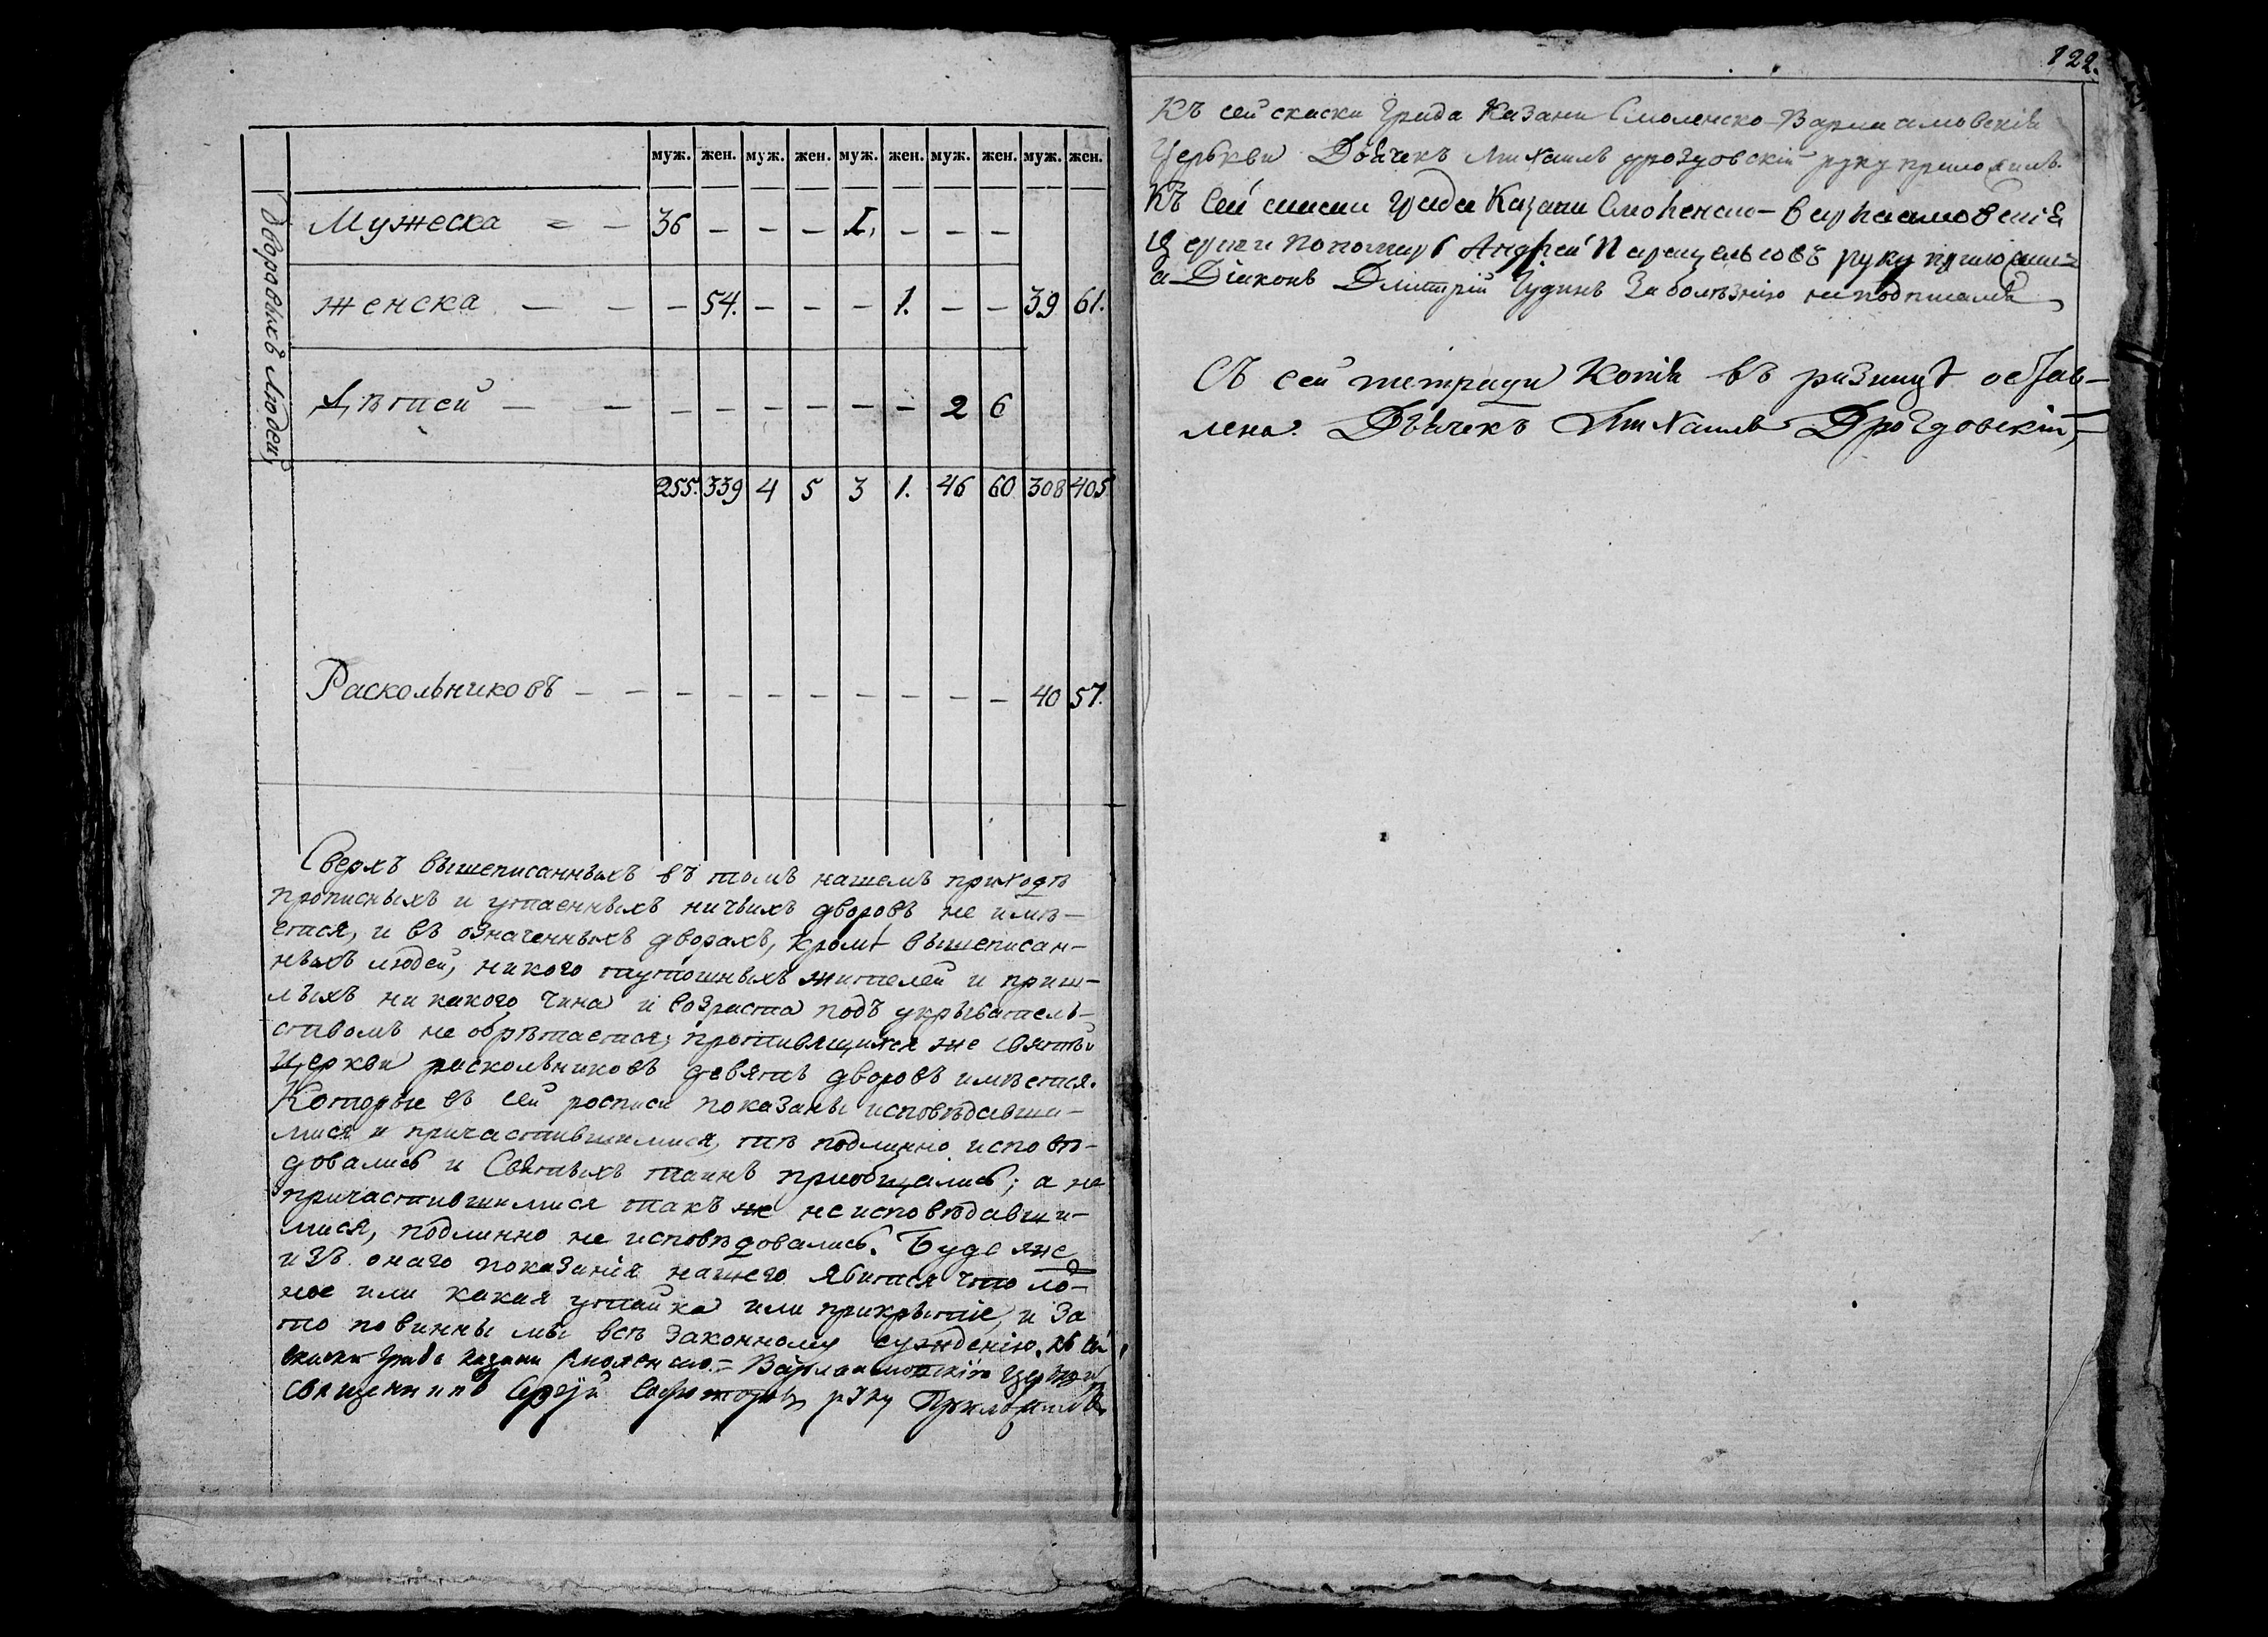 муж. жен. муж. жен. муж. жен. муж. жен. муж. жен.
Дворовыхъ Людей,
Мужеска = — 36 — — — 1, — — —
женска — — — 54. — — — 1. — — 39 61.
Дѣтей — — — — — — — — — — 2 6
255. 339 4 5 3 1. 46 60 308 405.
Раскольниковъ — — — — — — — — — — 40 57.
Сверхъ вышеписанныхъ въ томъ нашемъ приходѣ
прописныхъ и утаенныхъ ничьихъ дворовъ не имѣ-
ется, и въ означенныхъ дворахъ, кромѣ вышеписан-
ныхъ людей, никого тутошныхъ жителей и приш-
лыхъ никакого чина и возраста подъ укрыватель-
ствомъ не обрѣтается, противящихся же Святѣй
Церкви раскольниковъ девять дворовъ имѣется.
Которые въ сей росписи показаны исповѣдавши-
мися и причастившимися, тѣ подлинно исповѣ-
довались и Святыхъ таинъ приобщались; а не
причастившимися такъ же неисповѣдавши-
мися, подлинно не исповѣдовались. Буде же
изъ онаго показанія нашего явится что ло-
ное или какая утайка или прикрытие, и за
то повинны мы всѣ законному сужденію. Къ сей
скаски града Казани Смоленско=Варлаамовскія Церкви
священникъ руку приложилъ.
122.
Къ сей скаски града Казани Смоленско-Варлаамовскія
Церькви Дьячекъ Михаилъ дроздовскій руку приложилъ.
Къ сей скаски града Казани Смоленско-Варлаамовскія
церкви пономарь Андрей руку приложилъ
а Діаконъ Дмитрій Чудинъ за болѣзнію неподписался
Съ сей тетради копія въ ризницѣ остав-
лена. Дьячекъ Михаилъ Дроздовскій,